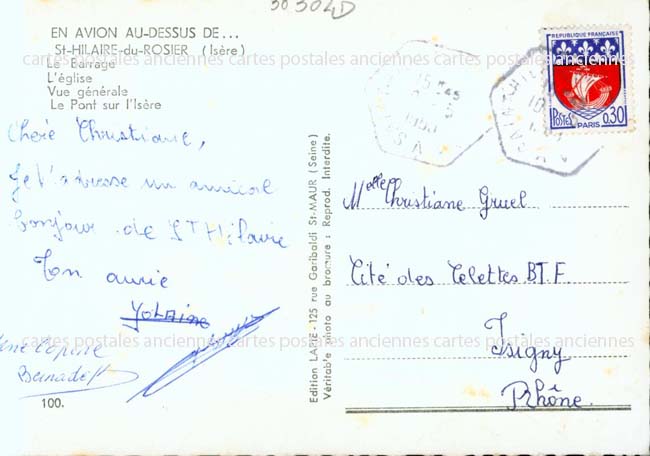 30 304D
EN AVION AU-DESSUS DE...
St-HILAIRE-du-ROSIER (Isère)
Le Barrage
L'église
Vue générale
Le Pont sur l'Isère
Chère Christiane,
Je t'adresse un amical
bonjour de St Hilaire
Ton amie
Yolaine
Bernadette
100.
Edition LAPIE - 125 rue Garibaldi St-MAUR (Seine)
Véritable photo au bromure : Reprod. Interdite.
REPUBLIQUE FRANÇAISE
POSTES
0,30
PARIS
Melle Christiane Gruel
Cité des Celettes BT.F.
Isigny
Rhône.
cartes postales anciennes cartes postales anciennes cartes postales anciennes
cartes postales anciennes cartes postales anciennes cartes postales anciennes